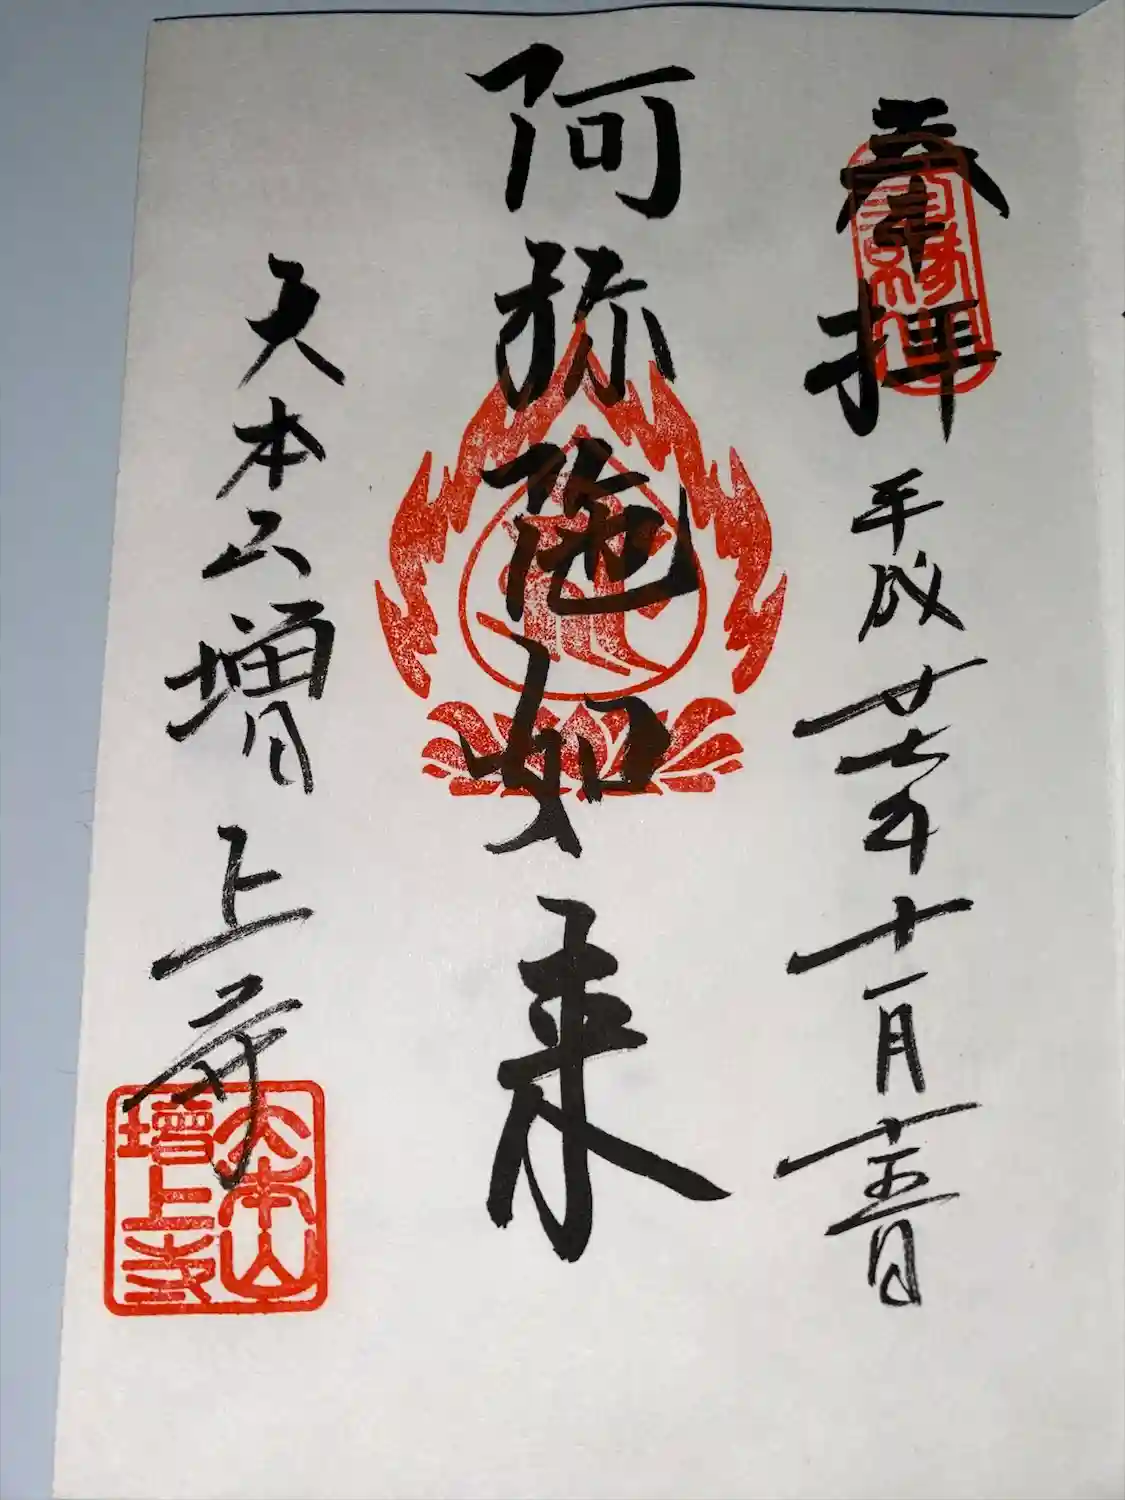 奉拝 平成廿七年十一月十五日
阿弥陀如来
大本山増上寺
大本山
増上寺